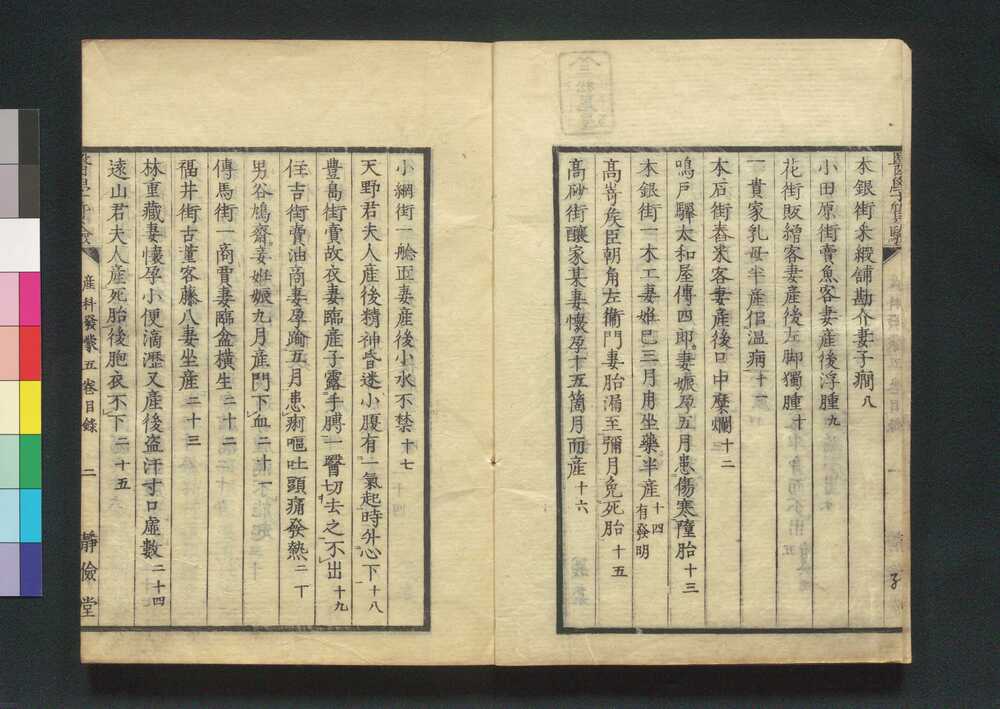 本銀街釆緞舗勘介妻子癇 八
小田原街賣魚客妻産後浮腫 九
花街販繒客妻産後左脚獨腫 十
一貴家乳母半産伹温病 十一
本石街舂米客妻産後口中糜爛 十二
鳴戸驛太和屋傳四郎妻娠孕五月患傷寒墮胎 十三
本銀街一木工妻娠已三月用坐藥半産 十四 有發明
高嵜矦臣朝角左衞門妻胎漏至彌月免死胎 十五
高砂街釀家某妻懷孕十五箇月而産 十六
小網街一舩匠妻産後小水不禁 十七
天野君夫人産後精神昏迷小腹有一氣起時升心下 十八
豊島街賣故衣妻臨産子露手膊一醫切去之不出 十九
住吉街賣油商妻孕踰五月患痢嘔吐頭痛發熱 二丁
男谷鳩齋妾姙娠九月産門下血 二十一
傳馬街一商賈妻臨盆横生 二十二
福井街古董客藤八妻坐産 二十三
林重藏妻懷孕小便滴瀝又産後盗汗寸口虛數 二十四
遠山君夫人産死胎後胞衣不下 二十五
産科發蒙五卷目錄 二 靜儉堂